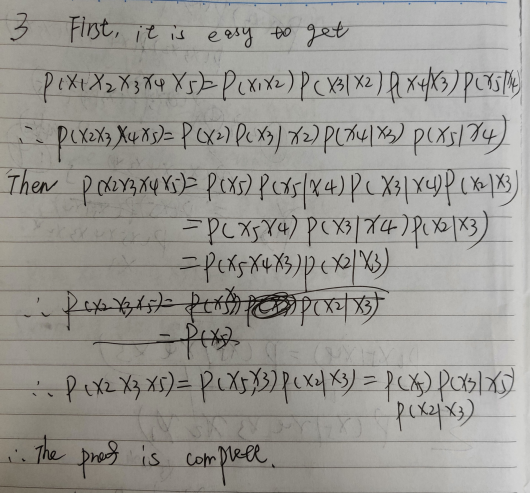 3 First, it is easy to get
P(X1X2X3X4X5)=P(X1X2)P(X3|X2)P(X4|X3)P(X5|X4)
∴ P(X2X3X4X5)=P(X2)P(X3|X2)P(X4|X3)P(X5|X4)
Then P(X2X3X4X5)=P(X5)P(X5|X4)P(X3|X4)P(X2|X3)
=P(X5X4)P(X3|X4)P(X2|X3)
=P(X5X4X3)P(X2|X3)
∴ P(X2X3X5)= P(X5X3) P(X2|X3)
=P(X5)
∴ P(X2X3X5)=P(X5X3)P(X2|X3)=P(X5)P(X3|X5)
P(X2|X3)
∴ The proof is complete.